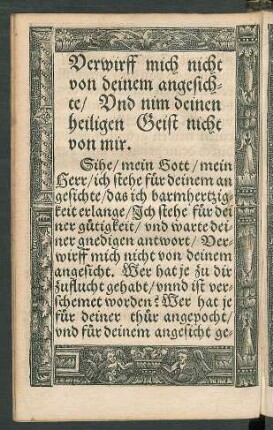 Verwirff mich nicht
von deinem angesich-
te/ Vnd nim deinen
heiligen Geist nicht
von mir.
Sihe/ mein Gott/ mein
Herr/ ich stehe für deinem an
gesichte/ das ich barmhertzig
keit erlange/ Ich stehe für dei
ner gütigkeit/ vnd warte dei
ner gnedigen antwort/ Ver
wirff mich nicht von deinem
angesicht. Wer hat je zu dir
zuflucht gehabt/ vnnd ist ver-
schemet worden? Wer hat je
für deiner thür angepocht/
vnd für deinem angesicht ge-